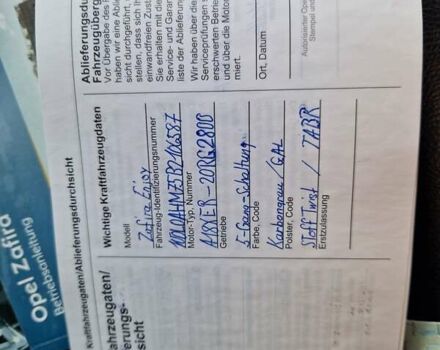 Opel Zafira
Betriebsanleitung
Kraftfahrzeugdaten/Ablieferungsdurchsicht
Wichtige Kraftfahrzeugdaten
Modell
Zafira Enjoy
Fahrzeug-Identifizierungsnummer
W0L0AHM75B2106587
Motor-Typ, Nummer
A18XER-20RG2800
Getriebe
5-Gang-Schaltung
Farbe, Code
Karbongrau / GAL
Polster, Code
Stoff Twist / TABR
Erstzulassung
Ablieferungsdu
Fahrzeugüberg
Vor Übergabe des F
haben wir eine Able
sicht durchgeführt,
stellen, dass sich Ih
einwandfreien Zust
Sie erhalten mit die
Service- und Garan
liste der Ablieferung
Wir haben über die
Serviceprüfungen s
erschwerten Betrie
und über die Motor
miert.
Ort, Datum
Autorisierter Ope
Stempel und
ahrzeugdaten/
erungs-
sicht